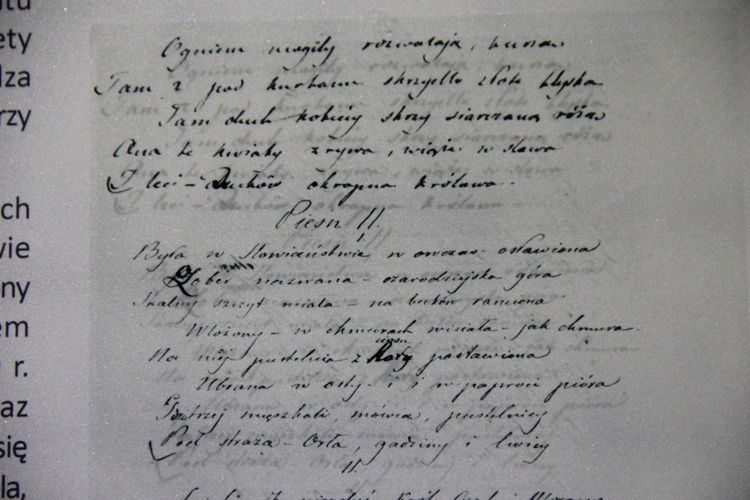 tu
ety
dza
rzy
ch
wie
ny
em
r.
az
się
la,
Ogniem mogiły rozwalają,
Tam z pod kurhanu skrzydło złote błyska
Tam duch kobiecy skrzy siarczaną różą
Ona te kwiaty zrywa, wiąże w słowa
I leci – Duchów okropna królowa.
Pieśń II.
1
Była w Słowiaństwie w owczas osławiona
nazwana – czarodziejska góra
Skalny szczyt miała – na buków ramiona
Włożony – w chmurach wisiała – jak chmura.
Na niéj pustelnia z Kory postawiona
Ubrana w osty i i w paproci pióra
mięszkali, mówią, pustelnicy
Pod strażą – Orła, gadziny i lwicy
11.